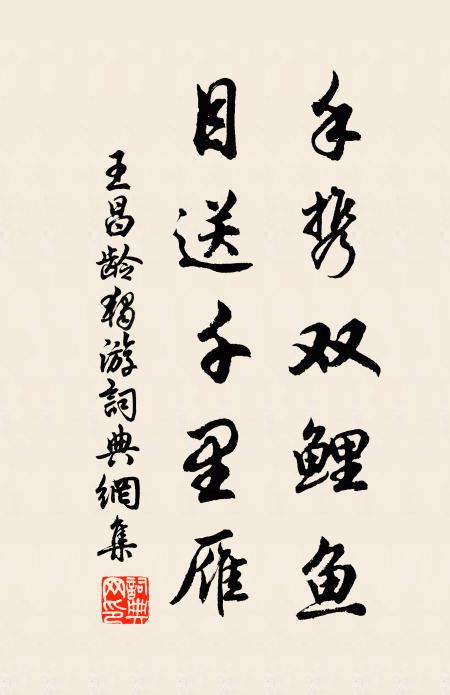 手携双鲤鱼
目送千里雁
王昌龄独游詞典網集
詞典
网印